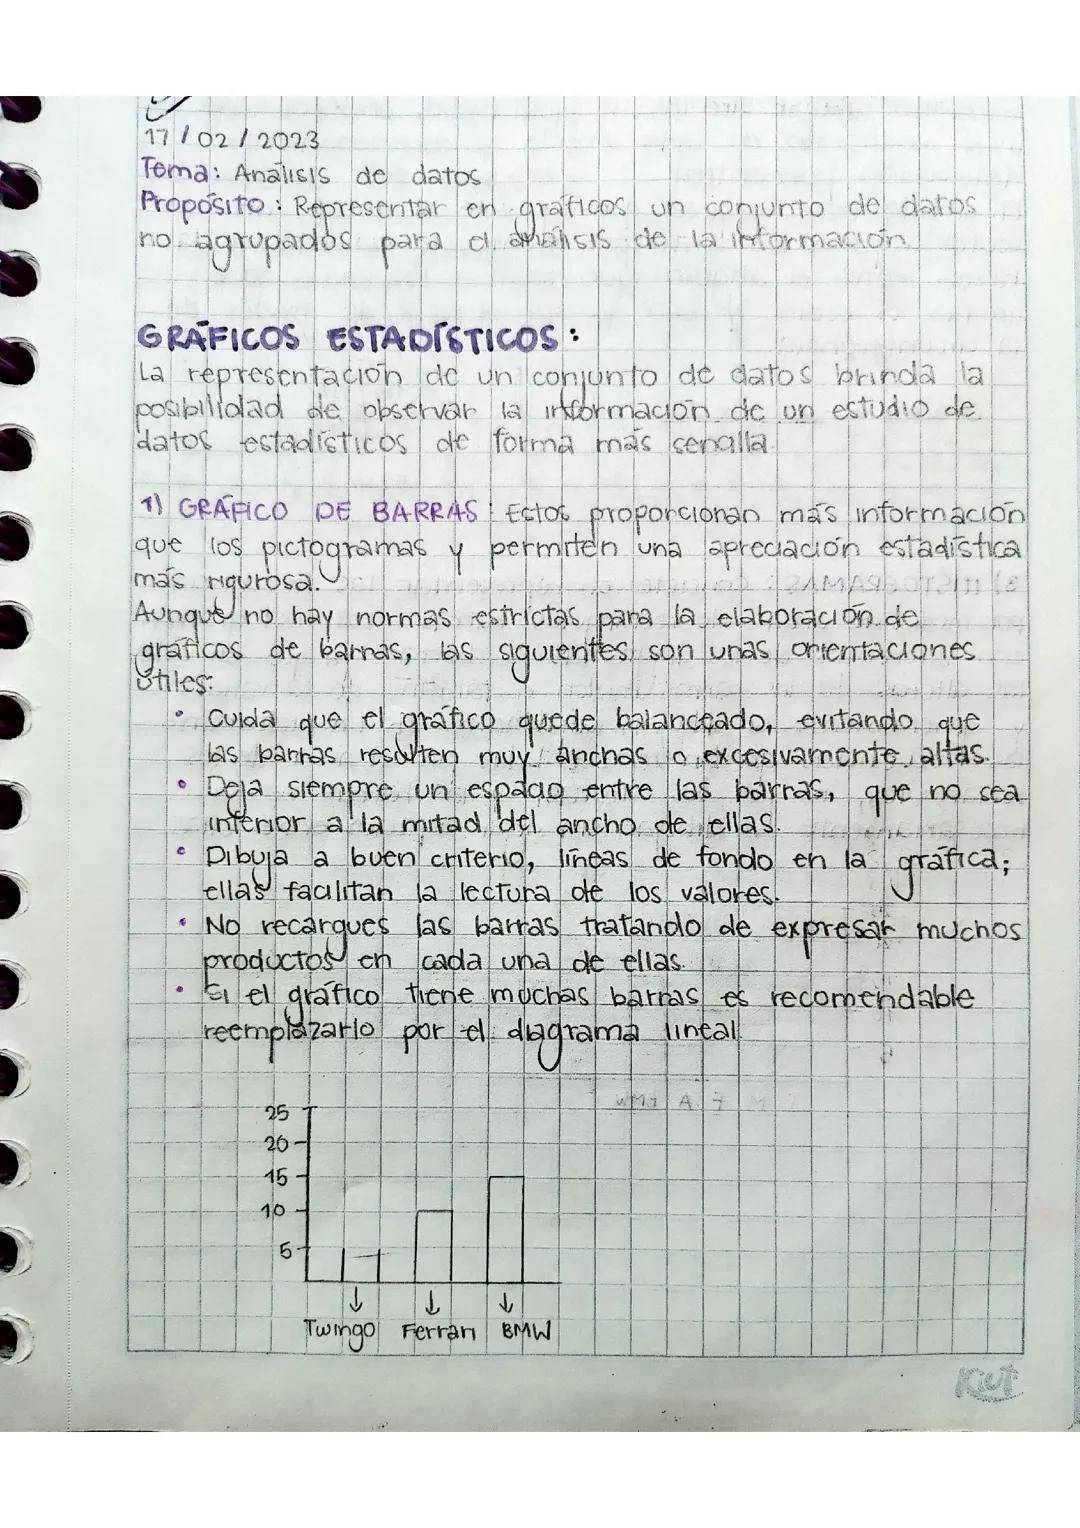 17/02/2023
Tema: Análisis de datos
Propósito: Representar en gráficos un conjunto de datos
no agrupados para el análisis de la información.
GRÁFICOS ESTADÍSTICOS:
La representación de un conjunto de datos brinda la
posibilidad de observar la información de un estudio de
datos estadísticos de forma más senalla.
1) GRÁFICO DE BARRAS: Estos proporcionan más información
que los pictogramas y permiten una apreciación estadística
más rigurosa.
Aunque no hay normas estrictas para la elaboración de
gráficos de barras, las siguientes son unas orientaciones
útiles:
• Cuida que el gráfico quede balanceado, evitando que
las barras resulten muy anchas o excesivamente altas.
• Deja siempre un espacio entre las barras, que no sea
inferior a la mitad del ancho de ellas.
• Dibuja a buen criterio, líneas de fondo en la gráfica;
ellas facilitan la lectura de los valores.
• No recargues las barras tratando de expresar muchos
productos en cada una de ellas.
• Si el gráfico tiene muchas barras es recomendable
reemplazarlo por el diagrama lineal.
25
20
15
10
5
Twingo Ferrari BMW
Kiut